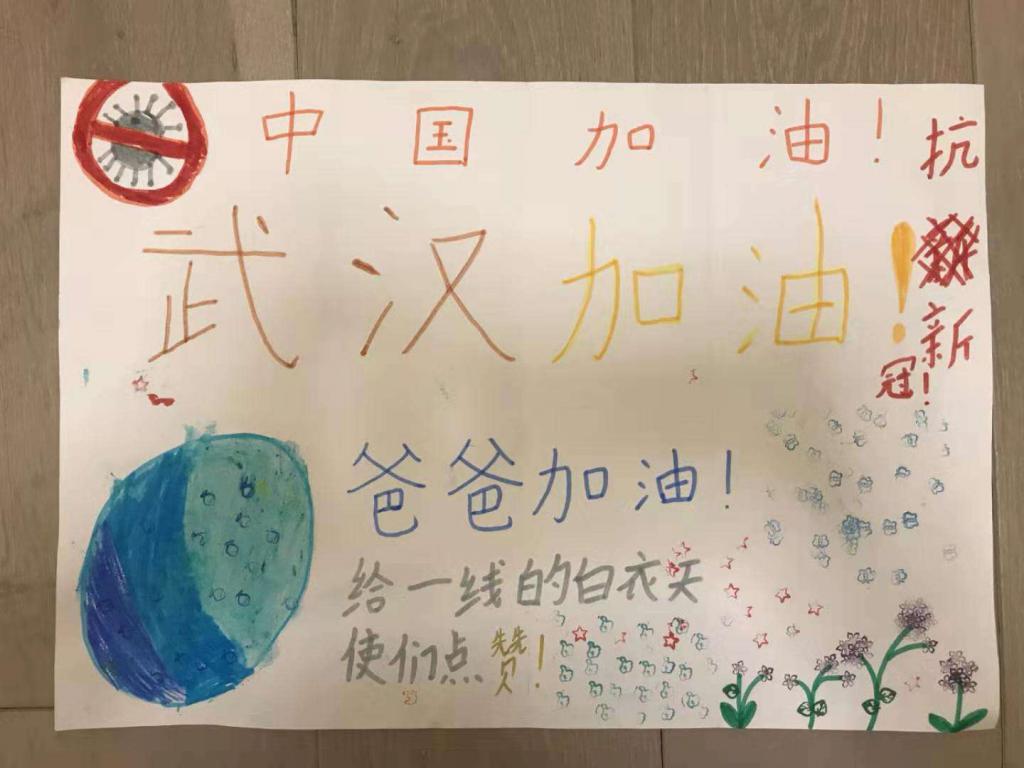 中国加油！
武汉加油！
抗新
冠！
爸爸加油！
给一线的白衣天
使们点赞！